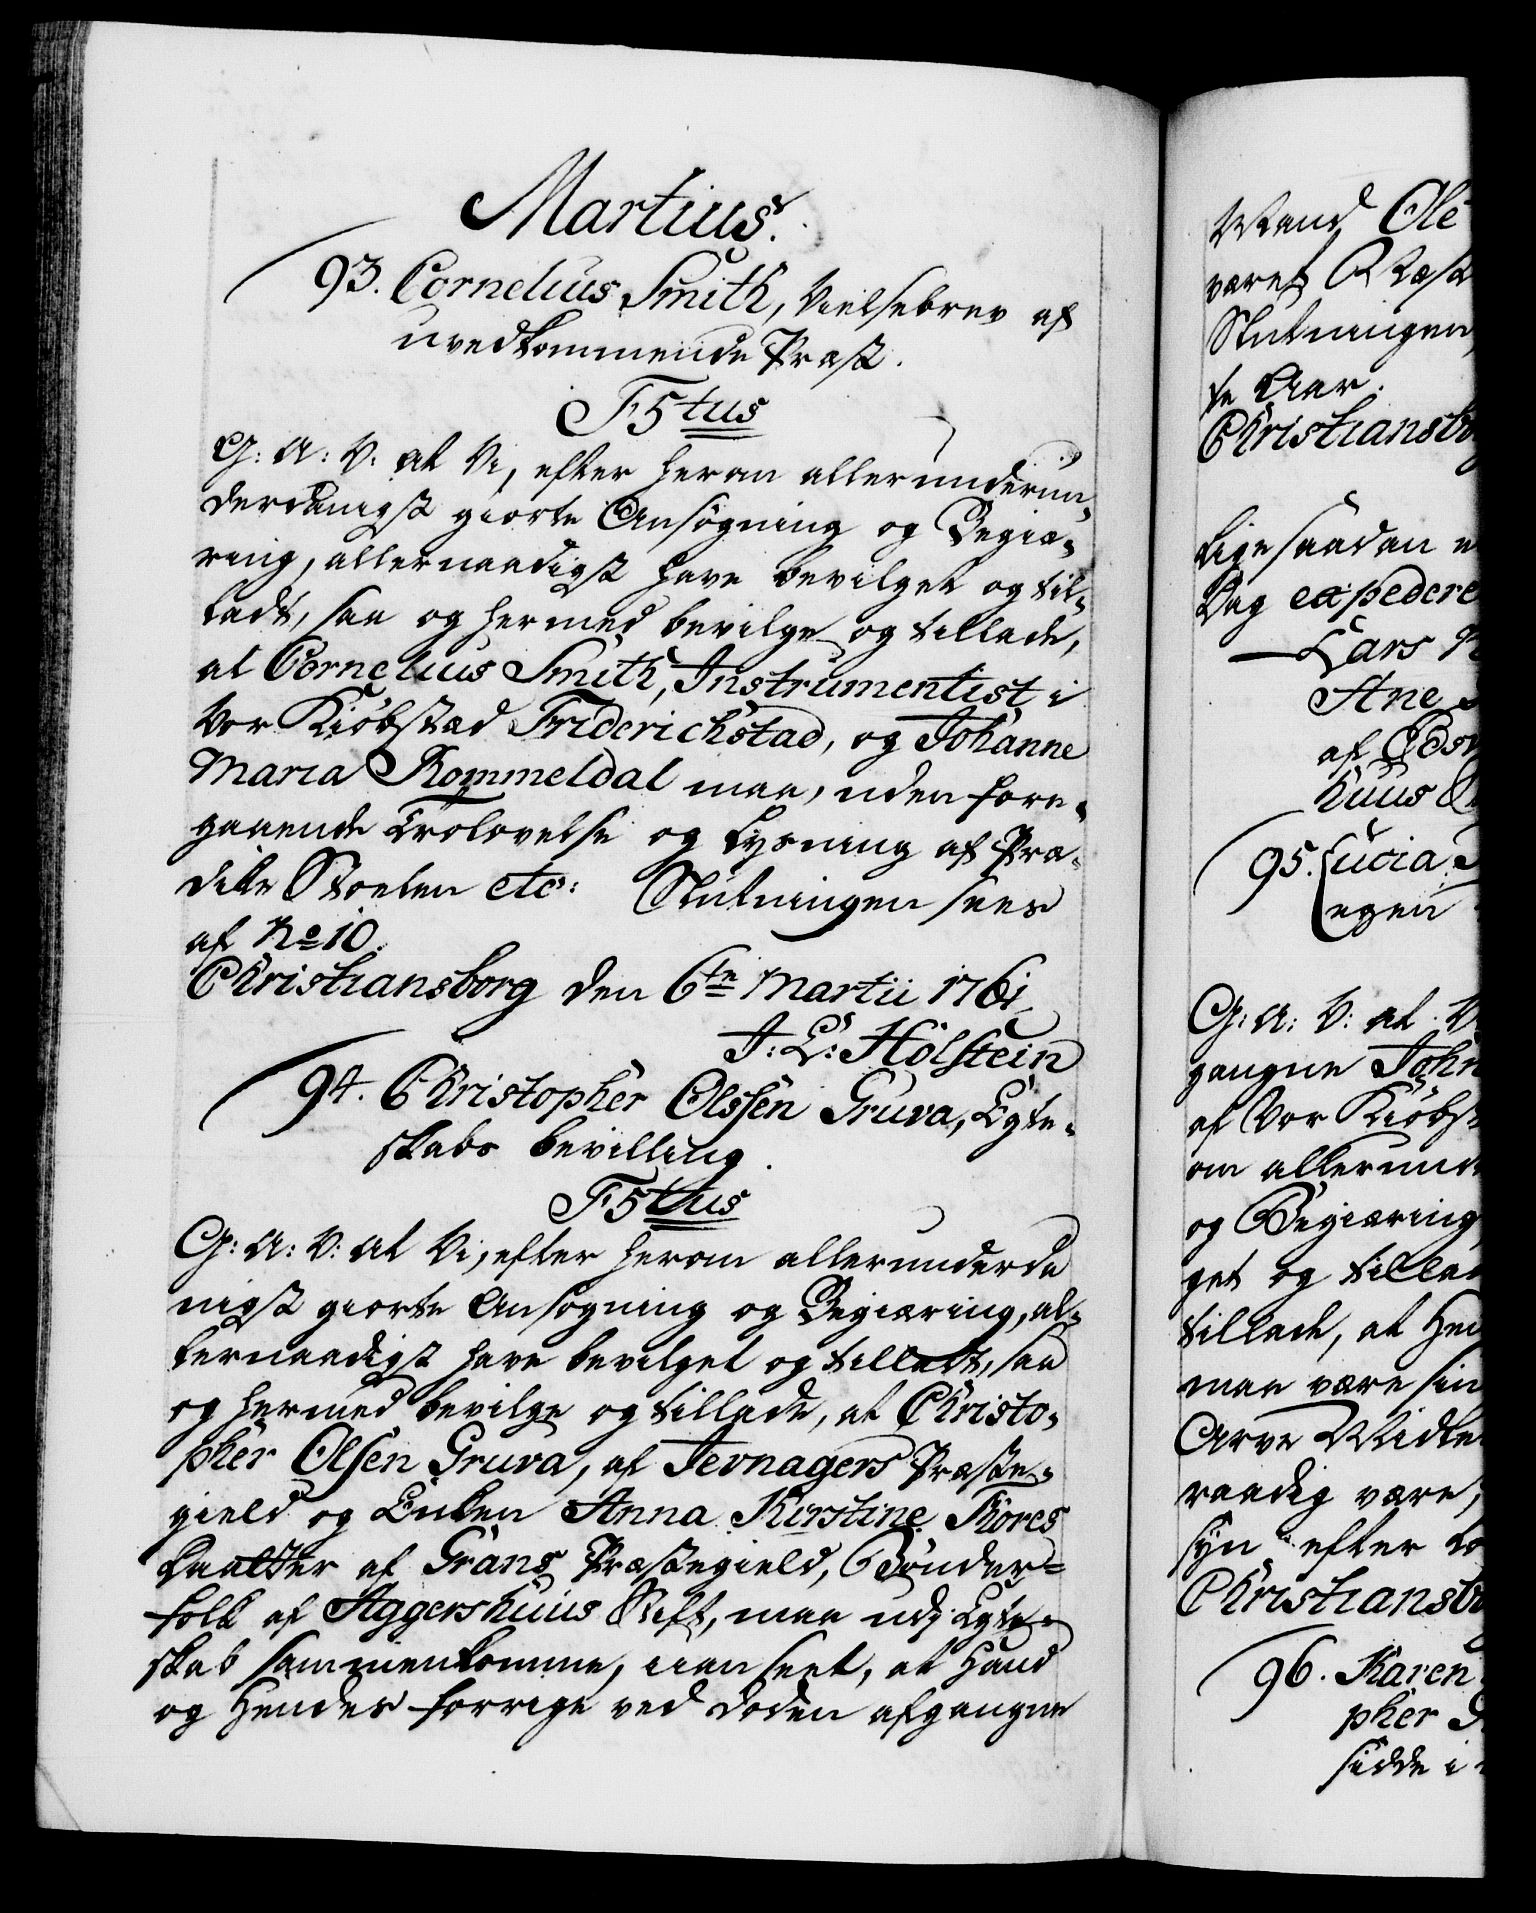 Martius.
93. Cornelius Smith, Vielsebrev af
uvedkommende Præst.
F5tus
G: A: V: at Vi, efter herom allerunderun-
derdanigst giorte Ansøgning og Begiæ-
ring, allernaadigst have bevilget og til-
ladt, saa og hermed bevilge og tillade,
at Cornelius Smith, Instrumentist i
Vor Kiøbstad Friderichstad, og Johanne
Maria Rommeldal maa, uden fore-
gaaende Trolovelse og Lysning af Præ-
dike Stoelen etc: Slutningen sees
af No 10.
Christiansborg den 6te Martii 1761
J: L: Holstein
94. Christopher Olssen Gruva, Egte-
skabs bevilling.
F5tus
G: A: V: at Vi, efter herom allerunderda
nigst giorte Ansøgning og Begiæring, al-
lernaadigst have bevilget og tilladt, saa
og hermed bevilge og tillade, at Christo-
pher Olsen Gruva, af Jevnagers Præste-
gield og Enken Anna Kirstine Kores
Laatter af Grans Præstegield, Bønder-
folk af Aggershuus Stift, maa udj Egte-
skab sammenkomme, uanseet, at Hand
og Hendes forrige ved døden afgangne
Mand Ole
været
Slutningen
te Aar.
Christiansbo
Lige saadan e
Dag expedere
Lars
Ane
af
huus
95. Lucia
egen
G: A: V: at V
gangne John
af Vor Kiøbst
om allerund
og Begiæring
get og tillad
tillade, at Hen
maa være sin
Arve Midle
raadig være,
syn efter Lo
Christiansbo
96. Karen
pher
sidde i